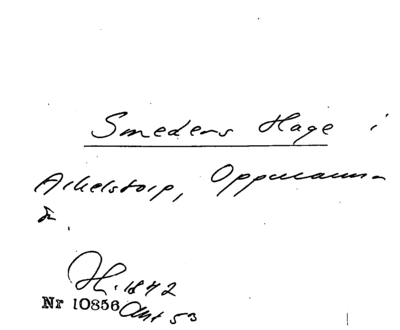 Smedens Hage i
Arkelstorp, Oppmanna-
sn.
H. 1842
Nr 10856 Akt 53